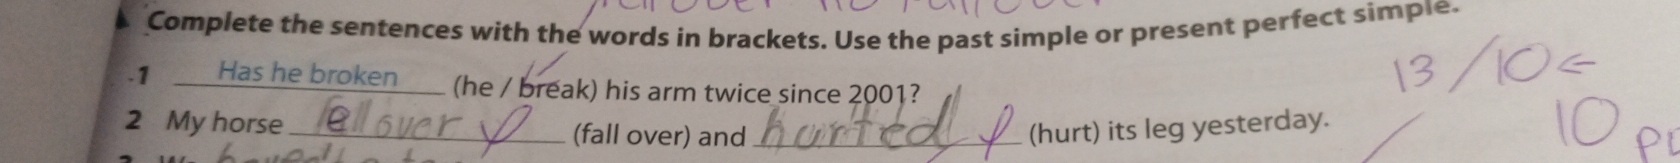 Complete the sentences with the words in brackets. Use the past simple or present perfect simple.
1 Has he broken (he / break) his arm twice since 2001?
2 My horse fell over (fall over) and hurted (hurt) its leg yesterday.
13/10
10